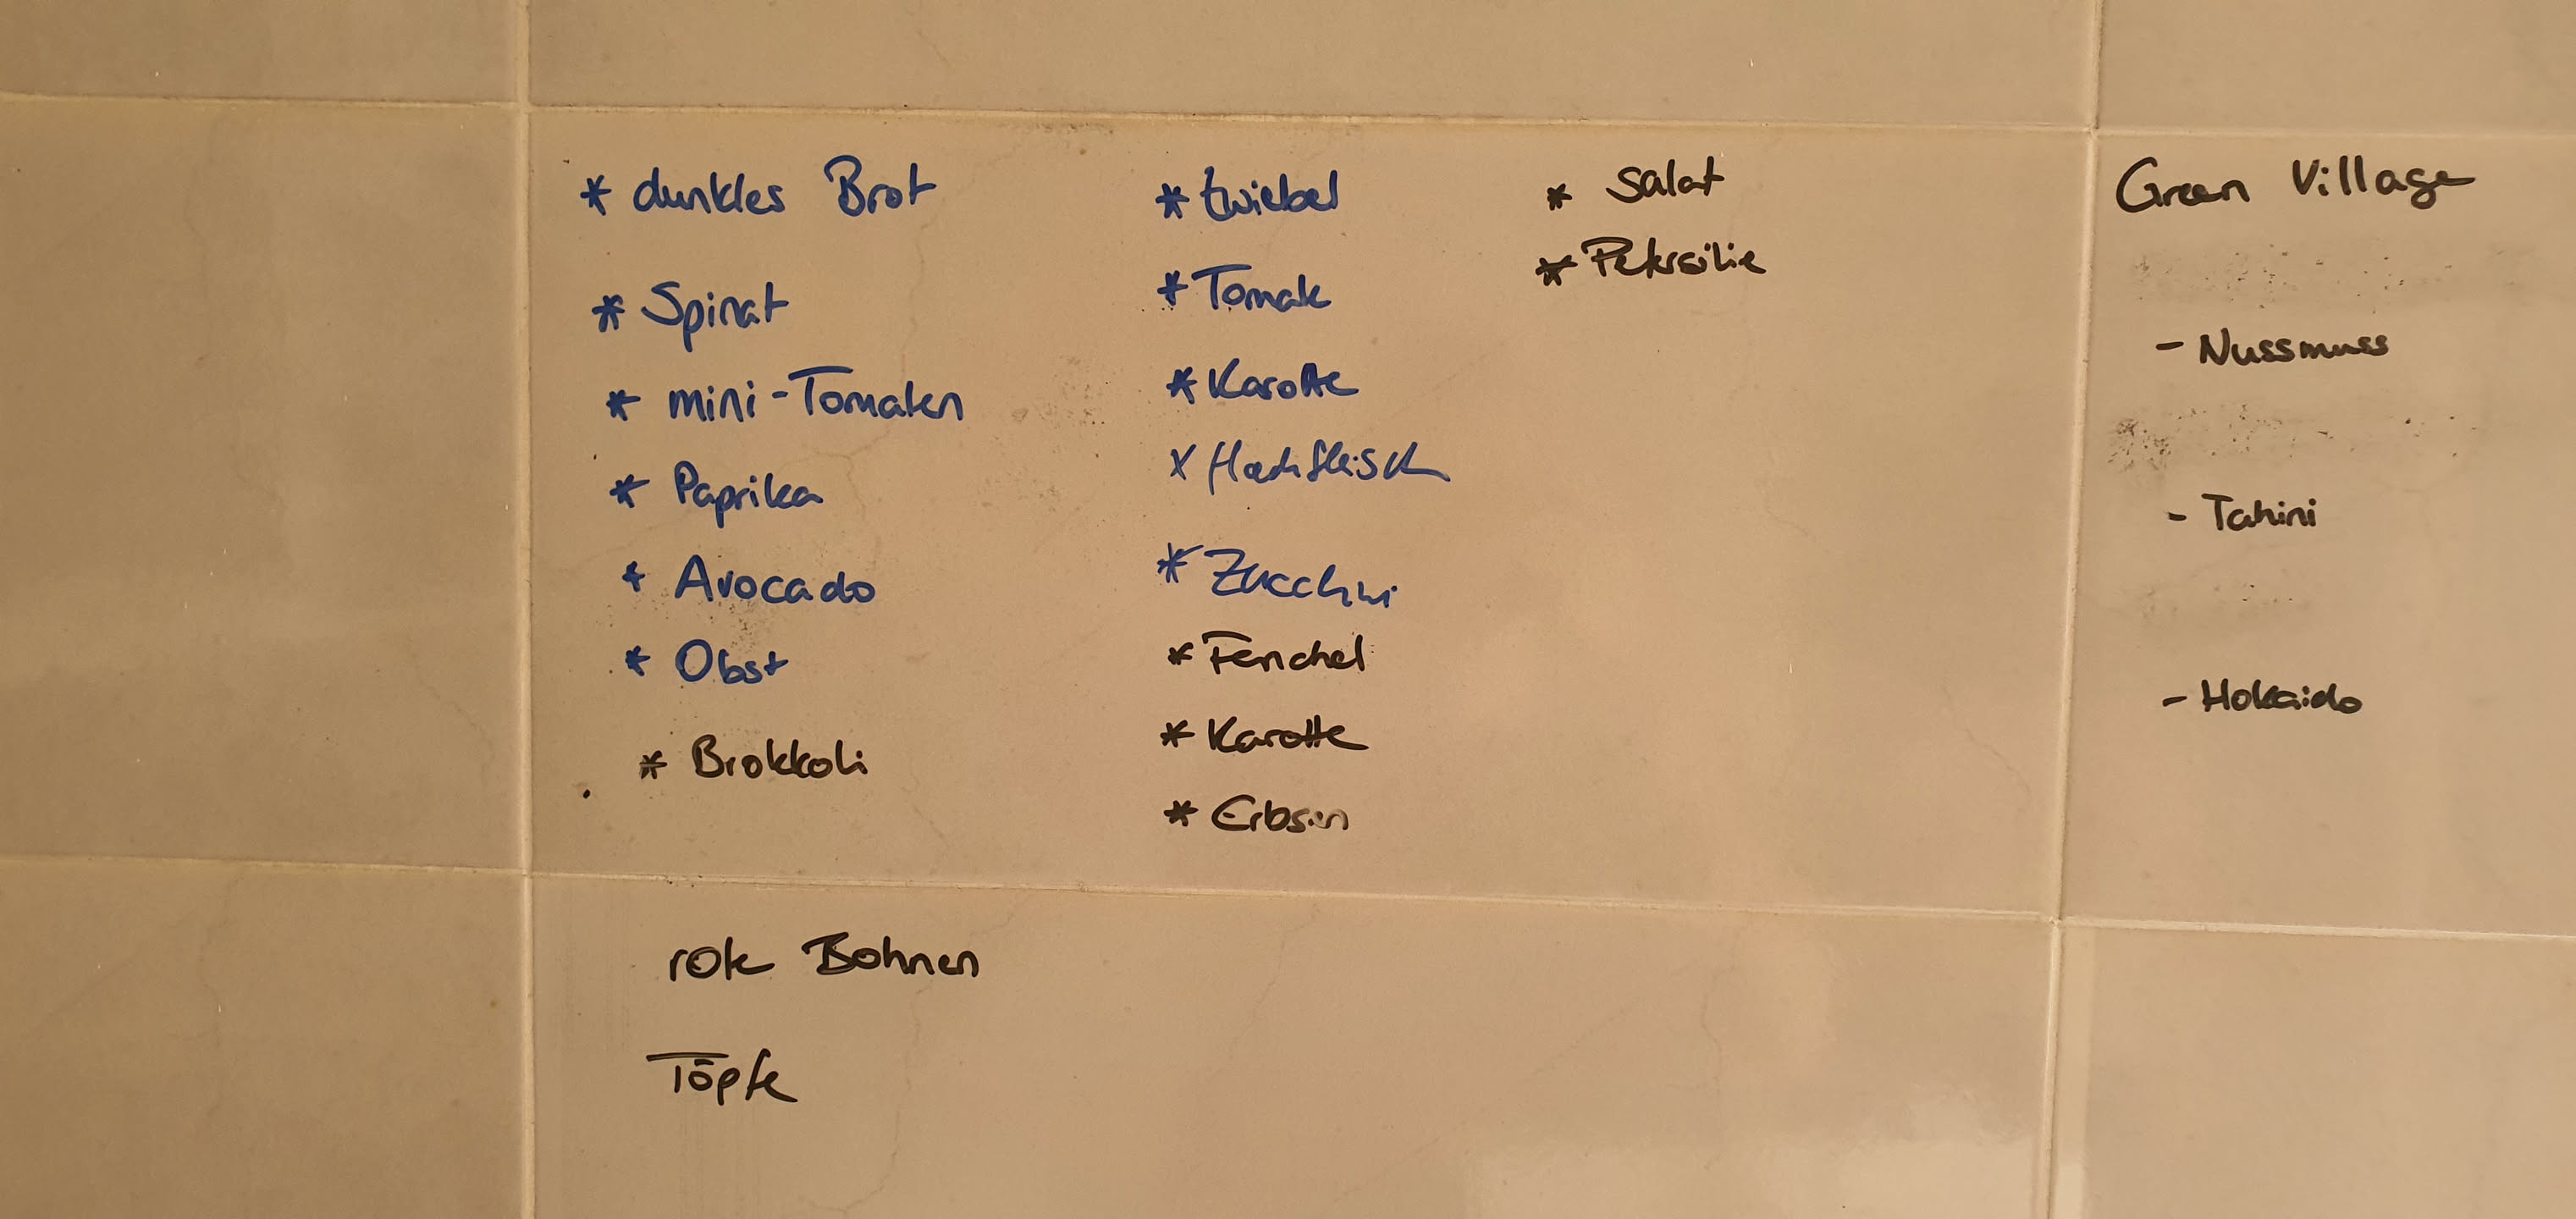 * dunkles Brot
* Spinat
* mini-Tomaten
* Paprika
* Avocado
* Obst
* Brokkoli
* Zwiebel
* Tomate
* Karotte
x Hackfleisch
* Zucchini
* Fenchel
* Karotte
* Erbsen
* Salat
* Petersilie
rote Bohnen
Töpfe
Green Village
- Nussmuss
- Tahini
- Hokaido